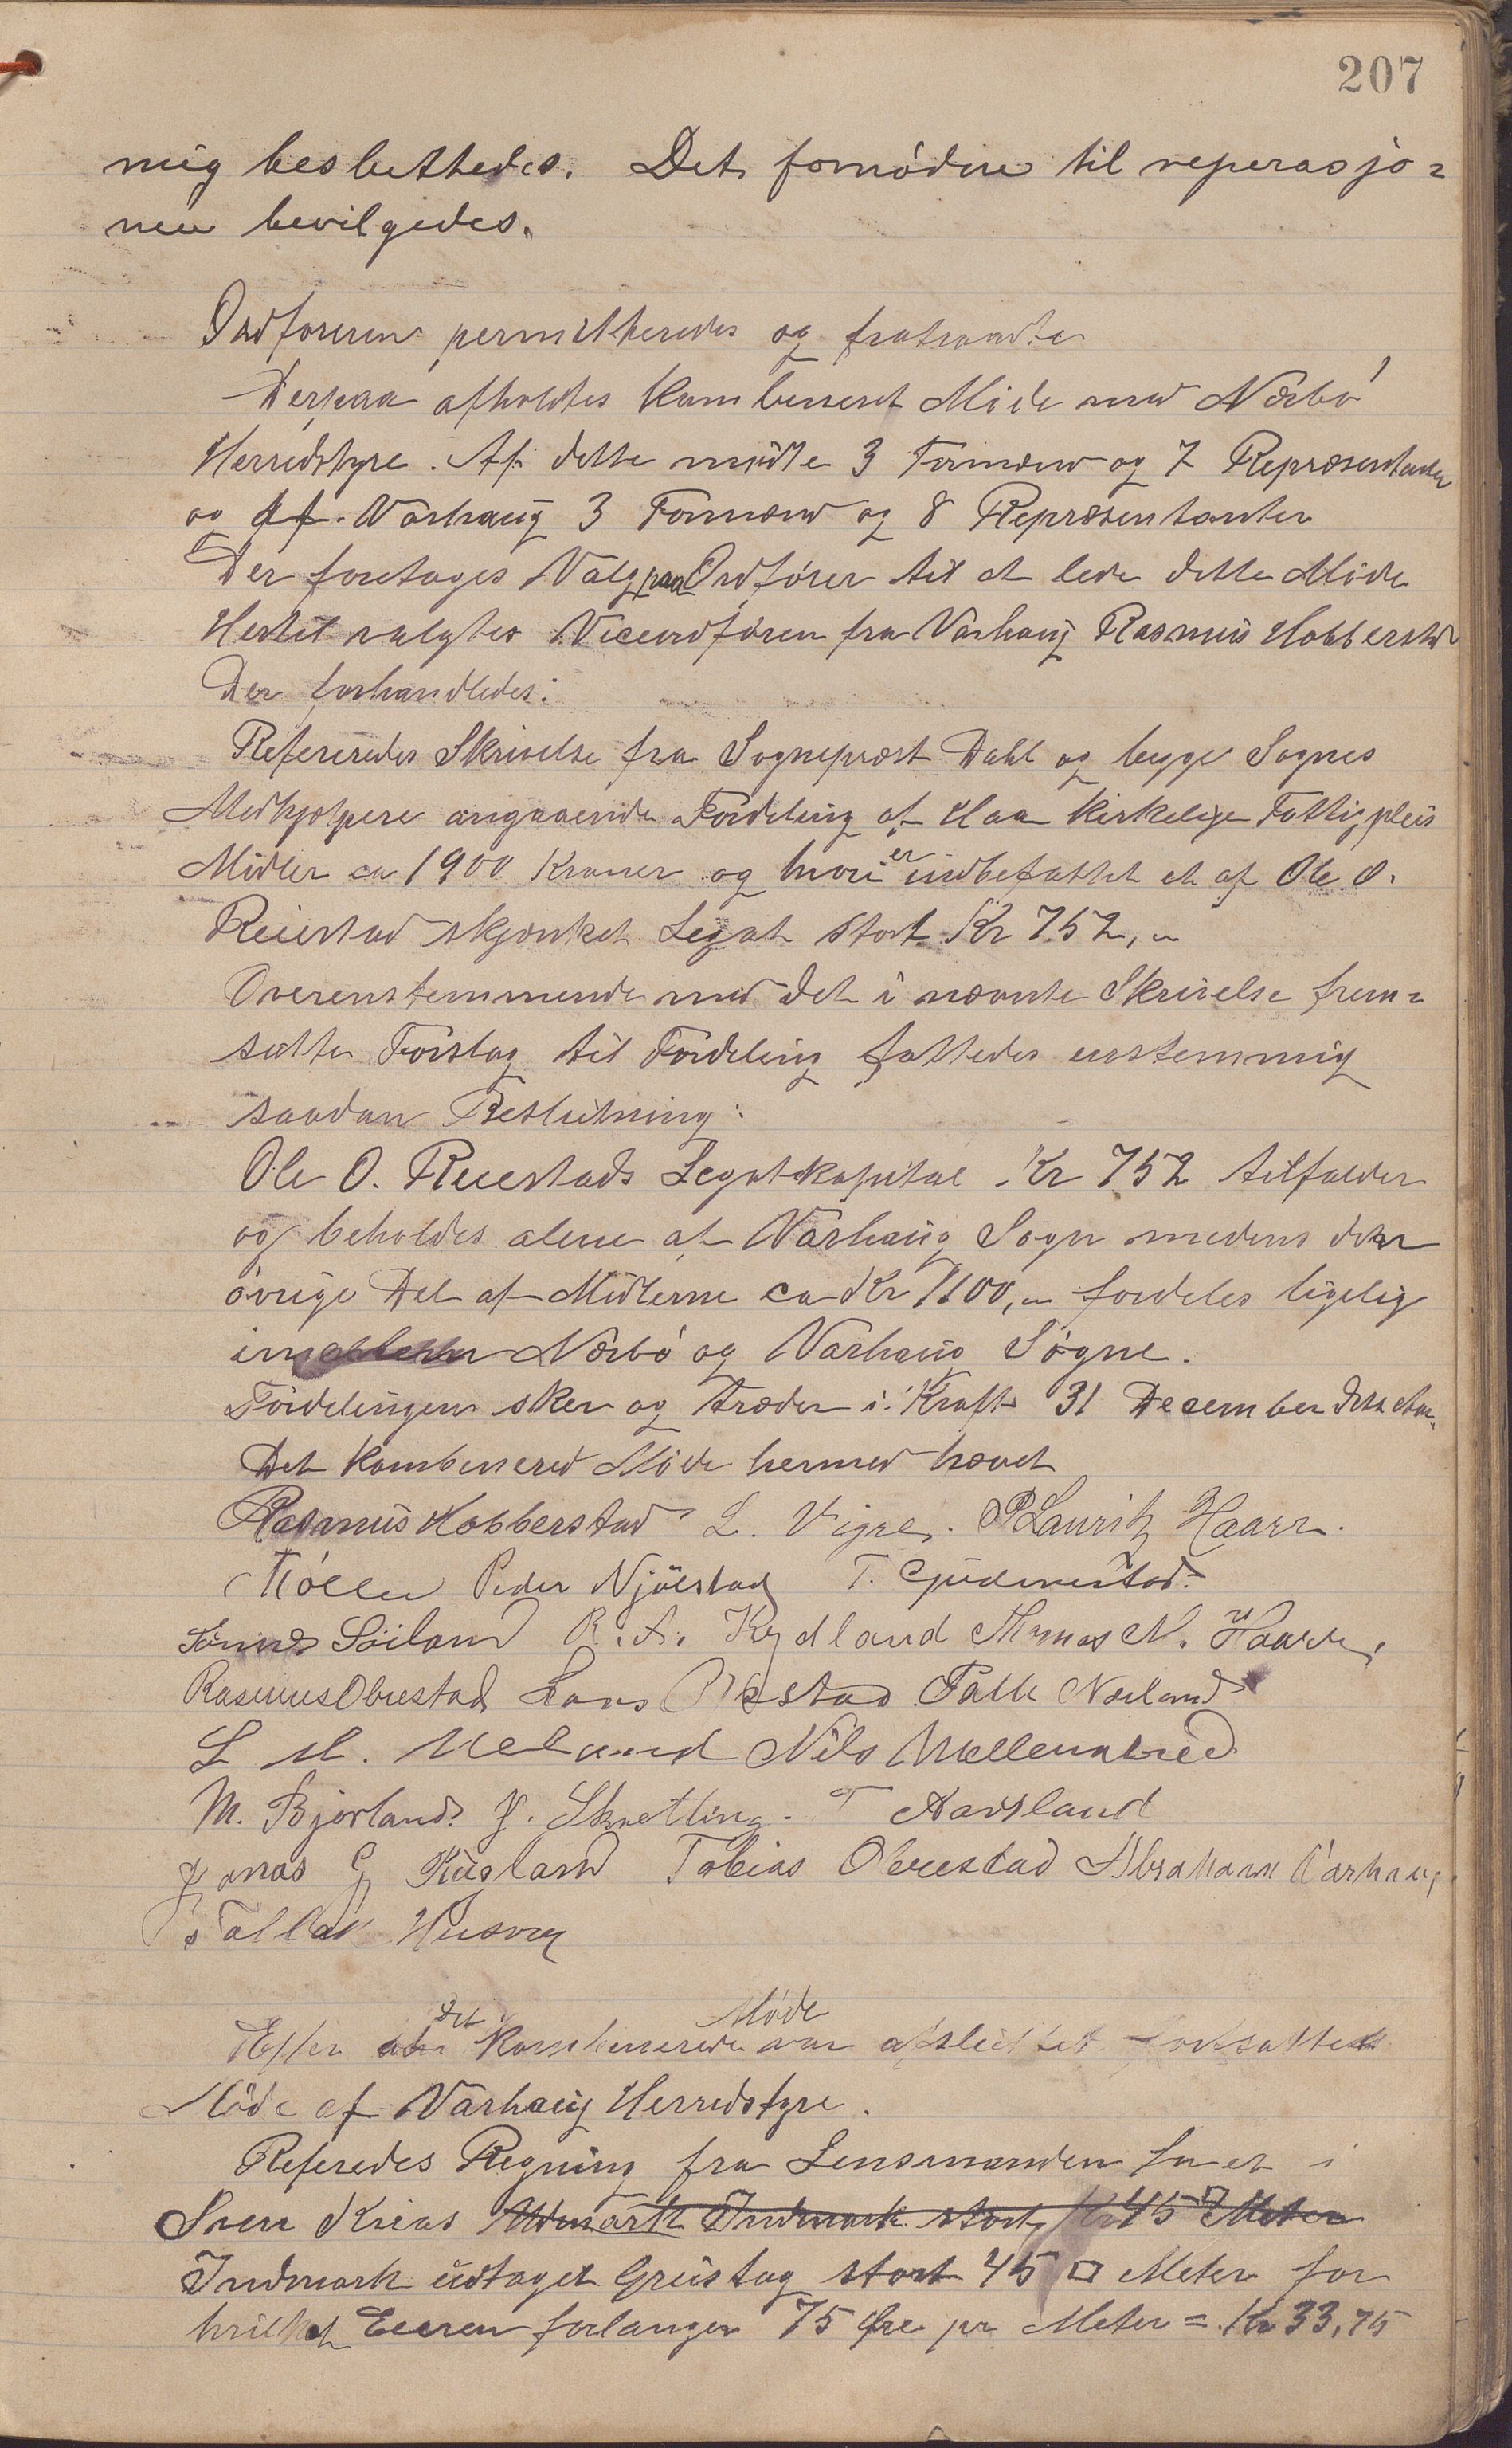 207
mig besluttedes. Det fornødne til reperasjo=
nen bevilgedes.
Ordføreren permitteredes og fratraadte
Derpaa afholdtes Kombineret Møde med Nærbø
Herredstyre. Af dette mødte 3 Formænd og 7 Repræsentanter
og af Varhaug 3 Formænd og 8 Repræsentanter
Der foretoges Valg paa Ordfører til at lede dette Møde
Hertil valgtes Viceordføren fra Varhaug Rasmus Hobberstad
Der forhandledes:
Refereredes Skrivelse fra Sognepræst Dahl og begge Sognes
Medhjælpere angaaende Fordeling af Haa kirkelige Fattigpleis
Midler ca 1900 Kroner og hvori er indbefattet et af Ole O.
Reiestad skjænket Legat stort Kr 752,„
Overenstemmende med det i nævnte Skrivelse frem=
satte Forslag til Fordeling fattedes enstemmig
saadan Beslutning:
Ole O. Reiestads Legatkapital Kr 752 tilfalder
og beholdes alene af Varhaug Sogn medens den
øvrige Del af Midlerne ca Kr 1100,„ fordeles ligelig
imellem Nærbø og Varhaug Sogne.
Fordelingen sker og træder i Kraft 31 December dette Aar.
Det Kombinered Møde hermed hævet
Rasmus Hobberstad L. Vigre. P Lauritz Haarr.
Møller Peder Njølstad T. Gudmestad.
Tønnes Søiland R. A. Kydland Thomas N. Haarr,
Rasmus Obrestad Lars Obrestad Falk Næland
L M. Ueland Nils Mellemstrand
M. Bjorland. J. Skretting. T Aarsland
Jonas G Kugland Tobias Obrestad Abraham Varhaug
Tallak Husvæg
Efter det Kombinerede Møde var afsluttet fortsattes
Møde af Varhaug Herredstyre.
Referedes Regning fra Lensmanden for et i
Sven Krias Udmark Indmark stort Kr 45 □ Meter
Indmark udtaget Grustag stort 45 □ Meter for
hvilket Eieren forlanger 75 Øre pr Meter = Kr 33,75